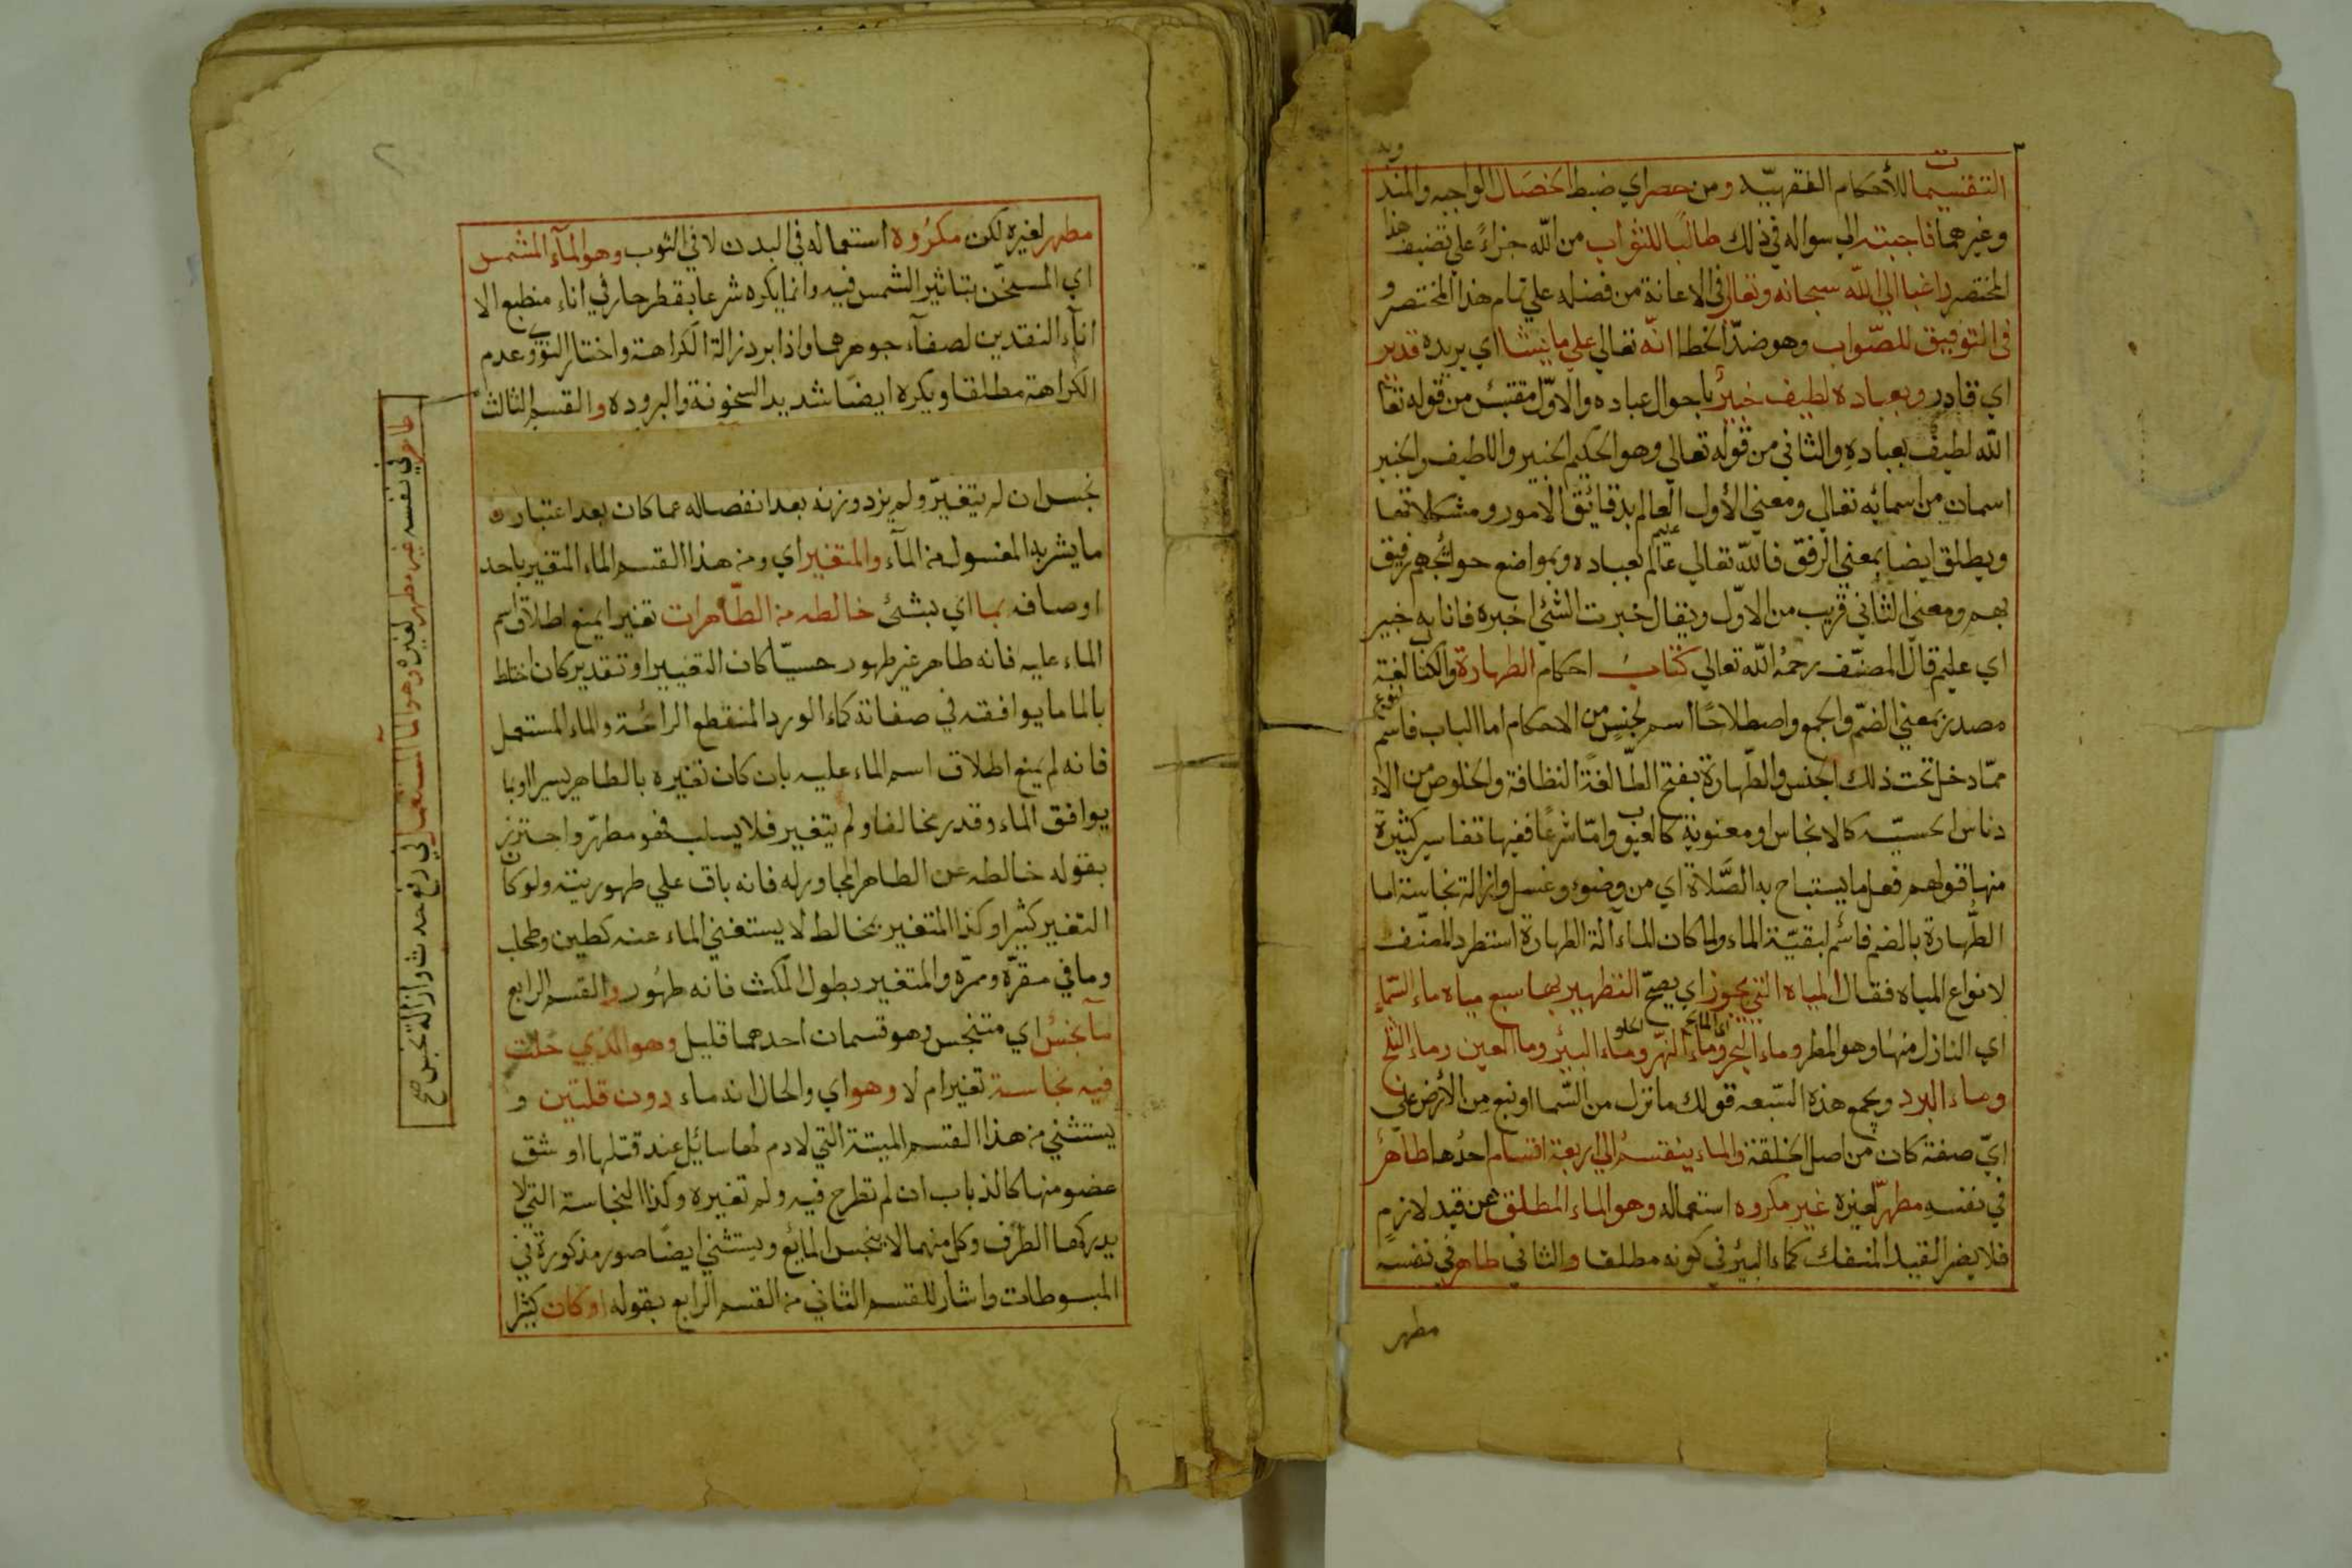 التقسيمات للأحكام الفقهيّة ومن حصر اي ضبط الخصال الواجبة والمندوبة
وغيرهما فاجبته الي سواله في ذلك طالبًا للثواب من الله جزاءً علي تصنيف هذا
المختصر راغبا الي الله سبحانه وتعالي في الاعانة من فضله علي تمام هذا المختصر و
في التوفيق للصّواب وهو ضدّ الخطا انّه تعالي علي ما يشا اي يريده قدير
اي قادر وبعباده لطيف خبيرٌ باحوال عباده والاوّل مقتبس من قوله تعالي
الله لطيفٌ بعبادهِ والثاني من قوله تعالي وهو الحكيم الخبير واللطيف والخبير
اسمان من اسمائه تعالي ومعني الأول العالم بدقائق الامور ومشكلاتها
ويطلق ايضا بمعني الرفق فالله تعالي عالم عليم بعباده وبمواضع حوائجهم رفيق
بهم ومعني الثاني قريب من الاوّل ويقال خبرت الشئ اخبره فانا به خبير
اي عليم قال المصنّف رحمه الله تعالي كتابُ احكام الطهارة والكتاب لغة
مصدر بمعني الضمّ والجمع واصطلاحًا اسم لجنسٍ من الاحكام اما الباب فاسم لنوع
ممّا دخل تحت ذلك الجنس والطّهارة بفتح الطّا لغةً النظافة والخلوص من الاد
دناس الحسيّه كالانجاس او معنوية كالعيوب وامّا شرعًا ففيها تفاسير كثيرة
منها قولهم فعل ما يستباح به الصَّلاة اي من وضوء وغسل وازالة نجاسة اما
الطُّهارة بالضم فاسم لبقيّة الماء ولما كان الماء آلة الطهارة استطرد المصنّف
لانواع المياه فقال المياه التي يجوز اي يصحّ التطهير بها سبع مياه ماء السّماء
اي النازل منها وهو المطر وماء البحر اي المالح وماء النهر الحلو وماء البئر وما العين وماء الثلج
وماء البرد ويجمع هذه السّبعه قولك ما نزل من السّما او نبع من الأرض علي
ايّ صفة كان من اصل الخلقة والماء ينقسم الي اربعة اقسام احدُها طاهرٌ
في نفسهِ مطهرٌ لغيرهِ غير مكروه استعماله وهو الماء المطلق عن قيد لازمٍ
فلا يضر القيد المنفك كماء البئر في كونه مطلقا والثاني طاهر في نفسه
مطهر
٢
مطهر لغيره لكن مكرُوه استعماله في البدن لا في الثوب وهو المآء المشمس
اي المسخّن بتاثير الشمس فيه وانما يكره شرعا بقطر حار في اناء منطبع الا
انآء النقدين لصفآء جوهرهما واذا برد زالة الكراهة واختار النووي عدم
الكراهة مطلقا ويكره ايضًا شديد السخونة والبروده والقسم الثالث
طاهر في نفسه غير مطهر لغيره وهو المآ المستعمل في رفع حدث وازالة نجس صح
نجس ان لم يتغيّر ولم يزد وزنه بعد انفصاله عما كان بعد اعتبار
ما يشربه المغسول من المآء والمتغير اي ومن هذا القسم الماء المتغير باحد
اوصافه بما اي بشئ خالطه من الطّاهرات تغيرا يمنع اطلاق اسم
الماء عليه فانه طاهر غير طهور حسيّا كان التغيير او تقديركان اختلط
بالما ما يوافقه في صفاته كماء الورد المنقطع الرائحة والماء المستعمل
فانه لم يمنع اطلاق اسم الماء عليه بان كان تغيره بالطاهر يسيرا او بما
يوافق الماء وقدر مخالفا ولم يتغير فلا يسلب فهو مطهّر واحترز
بقوله خالطه عن الطاهر المجاور له فانه باق علي طهوريته ولو كان
التغير كثيرا وكذا المتغير بمخالط لا يستغني الماء عنه كطين وطحلب
وما في مقرّه وممرّه والمتغير بطول المكث فانه طهُور والقسم الرابع
مآ نجسٌ اي متنجس وهو قسمان احدهما قليل وهو الذي حلّت
فيه نجاسة تغير ام لا وهو اي والحال انه ماء دون قلتين و
يستثني من هذا القسم الميتة التي لا دم لها سائل عند قتلها او شق
عضو منها كالذباب ان لم تطرح فيه ولم تغيره وكذا النجاسة التي لا
يدركها الطرف وكل منهما لا ينجس المائع ويستثني ايضًا صور مذكورة في
المبسوطات واشار للقسم الثاني من القسم الرابع بقوله او كان كثيرا